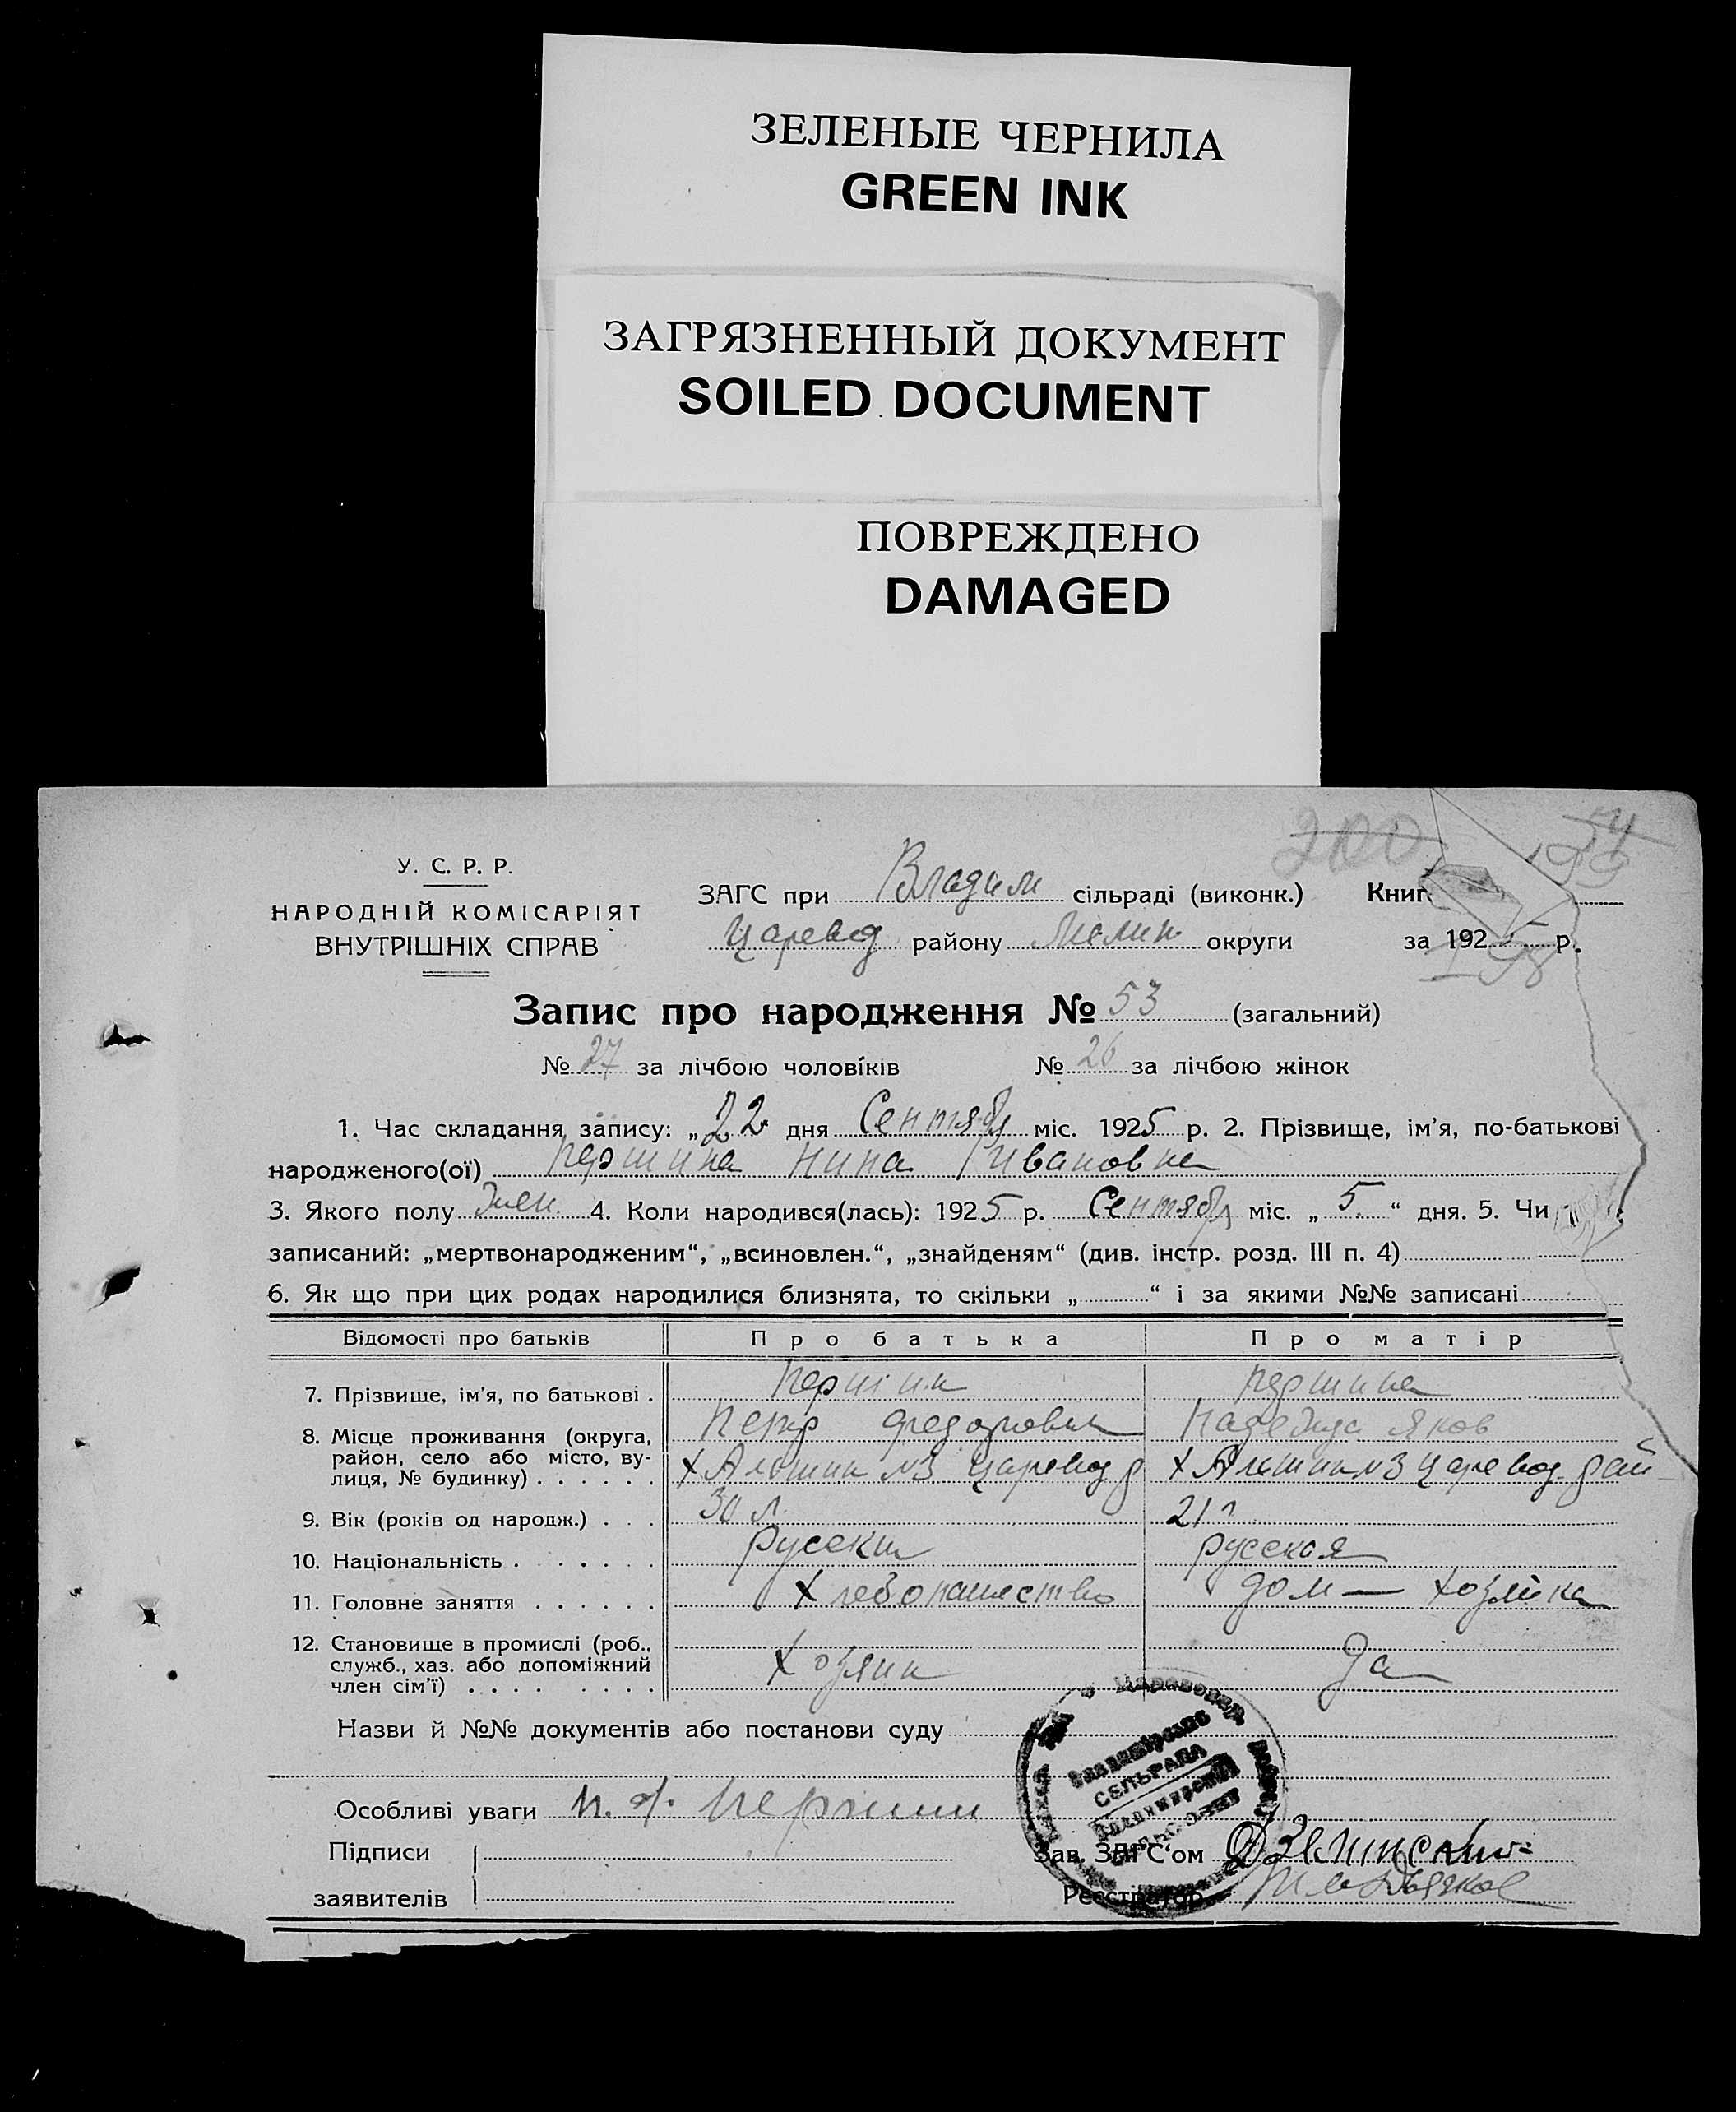 ЗЕЛЕНЫЕ ЧЕРНИЛА
GREEN INK
ЗАГРЯЗНЕННЫЙ ДОКУМЕНТ
SOILED DOCUMENT
ПОВРЕЖДЕНО
DAMAGED
200 54
199
У. С. Р. Р.
НАРОДНІЙ КОМІСАРІЯТ
ВНУТРІШНІХ СПРАВ
ЗАГС при Владим сільраді (виконк.) Книг
Царевод району округи за 1925 р.
198
Запис про народження № 53 (загальний)
№ 27 за лічбою чоловіків № 26 за лічбою жінок
1. Час складання запису: „22 дня Сентябр міс. 1925 р. 2. Прізвище, ім'я, по-батькові
народженого(ої) Першина Нина Ивановна
3. Якого полу жен. 4. Коли народився(лась): 1925 р. Сентябр міс. „ 5 “ дня. 5. Чи
записаний: „мертвонародженим“, „всиновлен.“, „знайденям“ (див. інстр. розд. III п. 4)
6. Як що при цих родах народилися близнята, то скільки „ “ і за якими №№ записані
Відомості про батьків Про батька Про матір
7. Прізвище, ім'я, по батькові . Першин Першина
8. Місце проживання (округа, Петр Федорович Надежда Яков
район, село або місто, ву-
лиця, № будинку) . . . . . . х Альшин №3 Царевод р х Альшин №3 Царевод. рай
9. Вік (років од народж.) . . . 30 л. 21 г
10. Національність . . . . . . . Русский русская
11. Головне заняття . . . . . . Хлебопашество дом — хозяйка
12. Становище в промислі (роб.,
служб., хаз. або допоміжний Хозяин да
член сім'ї) . . . . . . . . .
Назви й №№ документів або постанови суду
СЕЛЬРАДА
Особливі уваги П. Ф. Першин
Підписи
заявителів
Зав. ЗАГС'ом
Реєстратор Дьяков